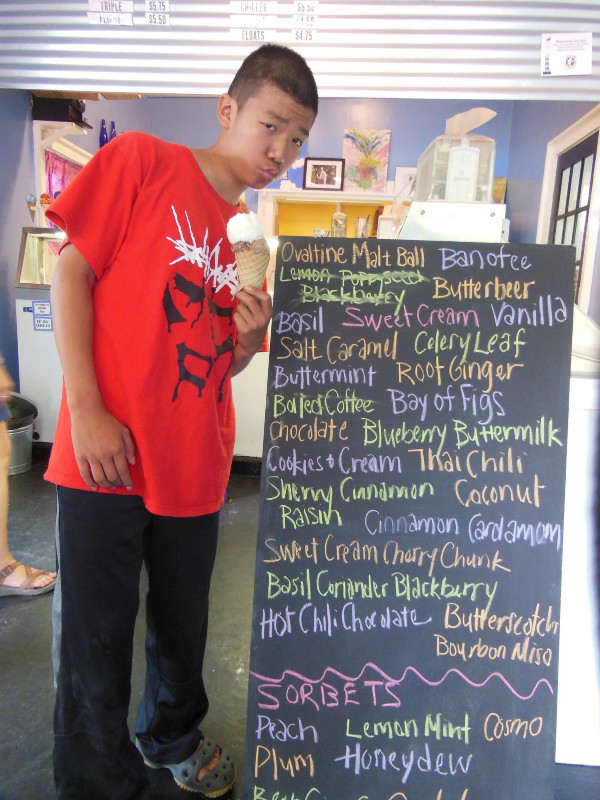 TRIPLE $5.75 CHILLER $5.50
$5.50
FLOATS $4.75
Ovaltine Malt Ball Banofee
Lemon Poppyseed
Blackberry Butterbeer
Basil Sweet Cream Vanilla
Salt Caramel Celery Leaf
Buttermint Root Ginger
Boiled Coffee Bay of Figs
Chocolate Blueberry Buttermilk
Cookies & Cream Thai Chili
Sherry Cinnamon Coconut
Raisin Cinnamon Cardamom
Sweet Cream Cherry Chunk
Basil Coriander Blackberry
Hot Chili Chocolate Butterscotch
Bourbon Miso
SORBETS
Peach Lemon Mint Cosmo
Plum Honeydew